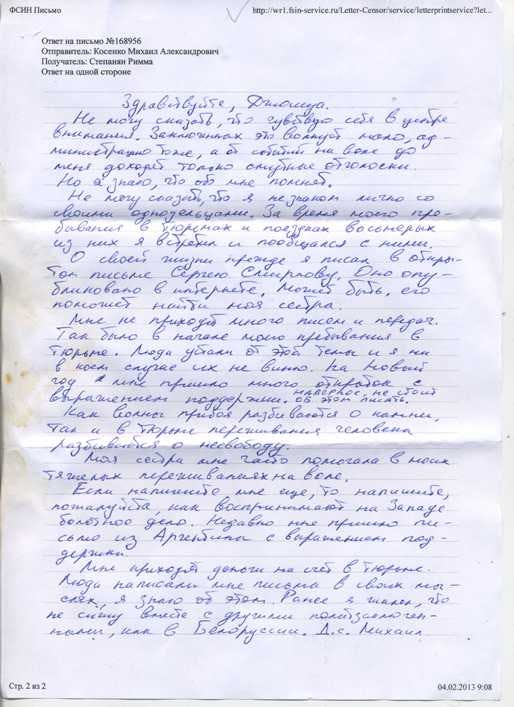 ФСИН Письмо
http://wr1.fsin-service.ru/Letter-Censor/service/letterprintservice?let...
Ответ на письмо №168956
Отправитель: Косенко Михаил Александрович
Получатель: Степанян Римма
Ответ на одной стороне
Здравствуйте,
Не могу сказать, что чувствую себя в центре
внимания. Заключенных это волнует мало, ад-
министрацию тоже, а от событий на воле до
меня доходят только смутные отголоски.
Но я знаю, что обо мне помнят.
Не могу сказать, что я не знаком лично со
своими однодельцами. За время моего пре-
бывания в тюрьмах и поездках восьмерых
из них я встретил и пообщался с ними.
О своей жизни прежде я писал в откры-
том письме Сергею Смирнову. Оно опу-
бликовано в интернете, может быть, его
поможет найти моя сестра.
Мне не приходят много писем и передач.
Так было в начале моего пребывания в
тюрьме. Люди устали от этой темы и я ни
в коем случае их не виню. На Новый
год мне пришло много открыток с
выражением поддержки. наверное, не стоит
об этом писать.
Как волны прибоя разбиваются о камни,
так и в тюрьме переживания человека
разбиваются о несвободу.
Моя сестра мне часто помогала в моих
тяжелых переживаниях на воле.
Если напишите мне еще, то напишите,
пожалуйста, как воспринимают на Западе
болотное дело. Недавно мне пришло пи-
сьмо из Аргентины с выражением под-
держки.
Мне приходят деньги на счёт в тюрьме.
Люди написали мне письма в своих мы-
слях, я знаю об этом. Ранее я жалел, что
не сижу вместе с другими политзаключен-
ными, как в Белоруссии. Д.с. Михаил
Стр. 2 из 2
04.02.2013 9:08